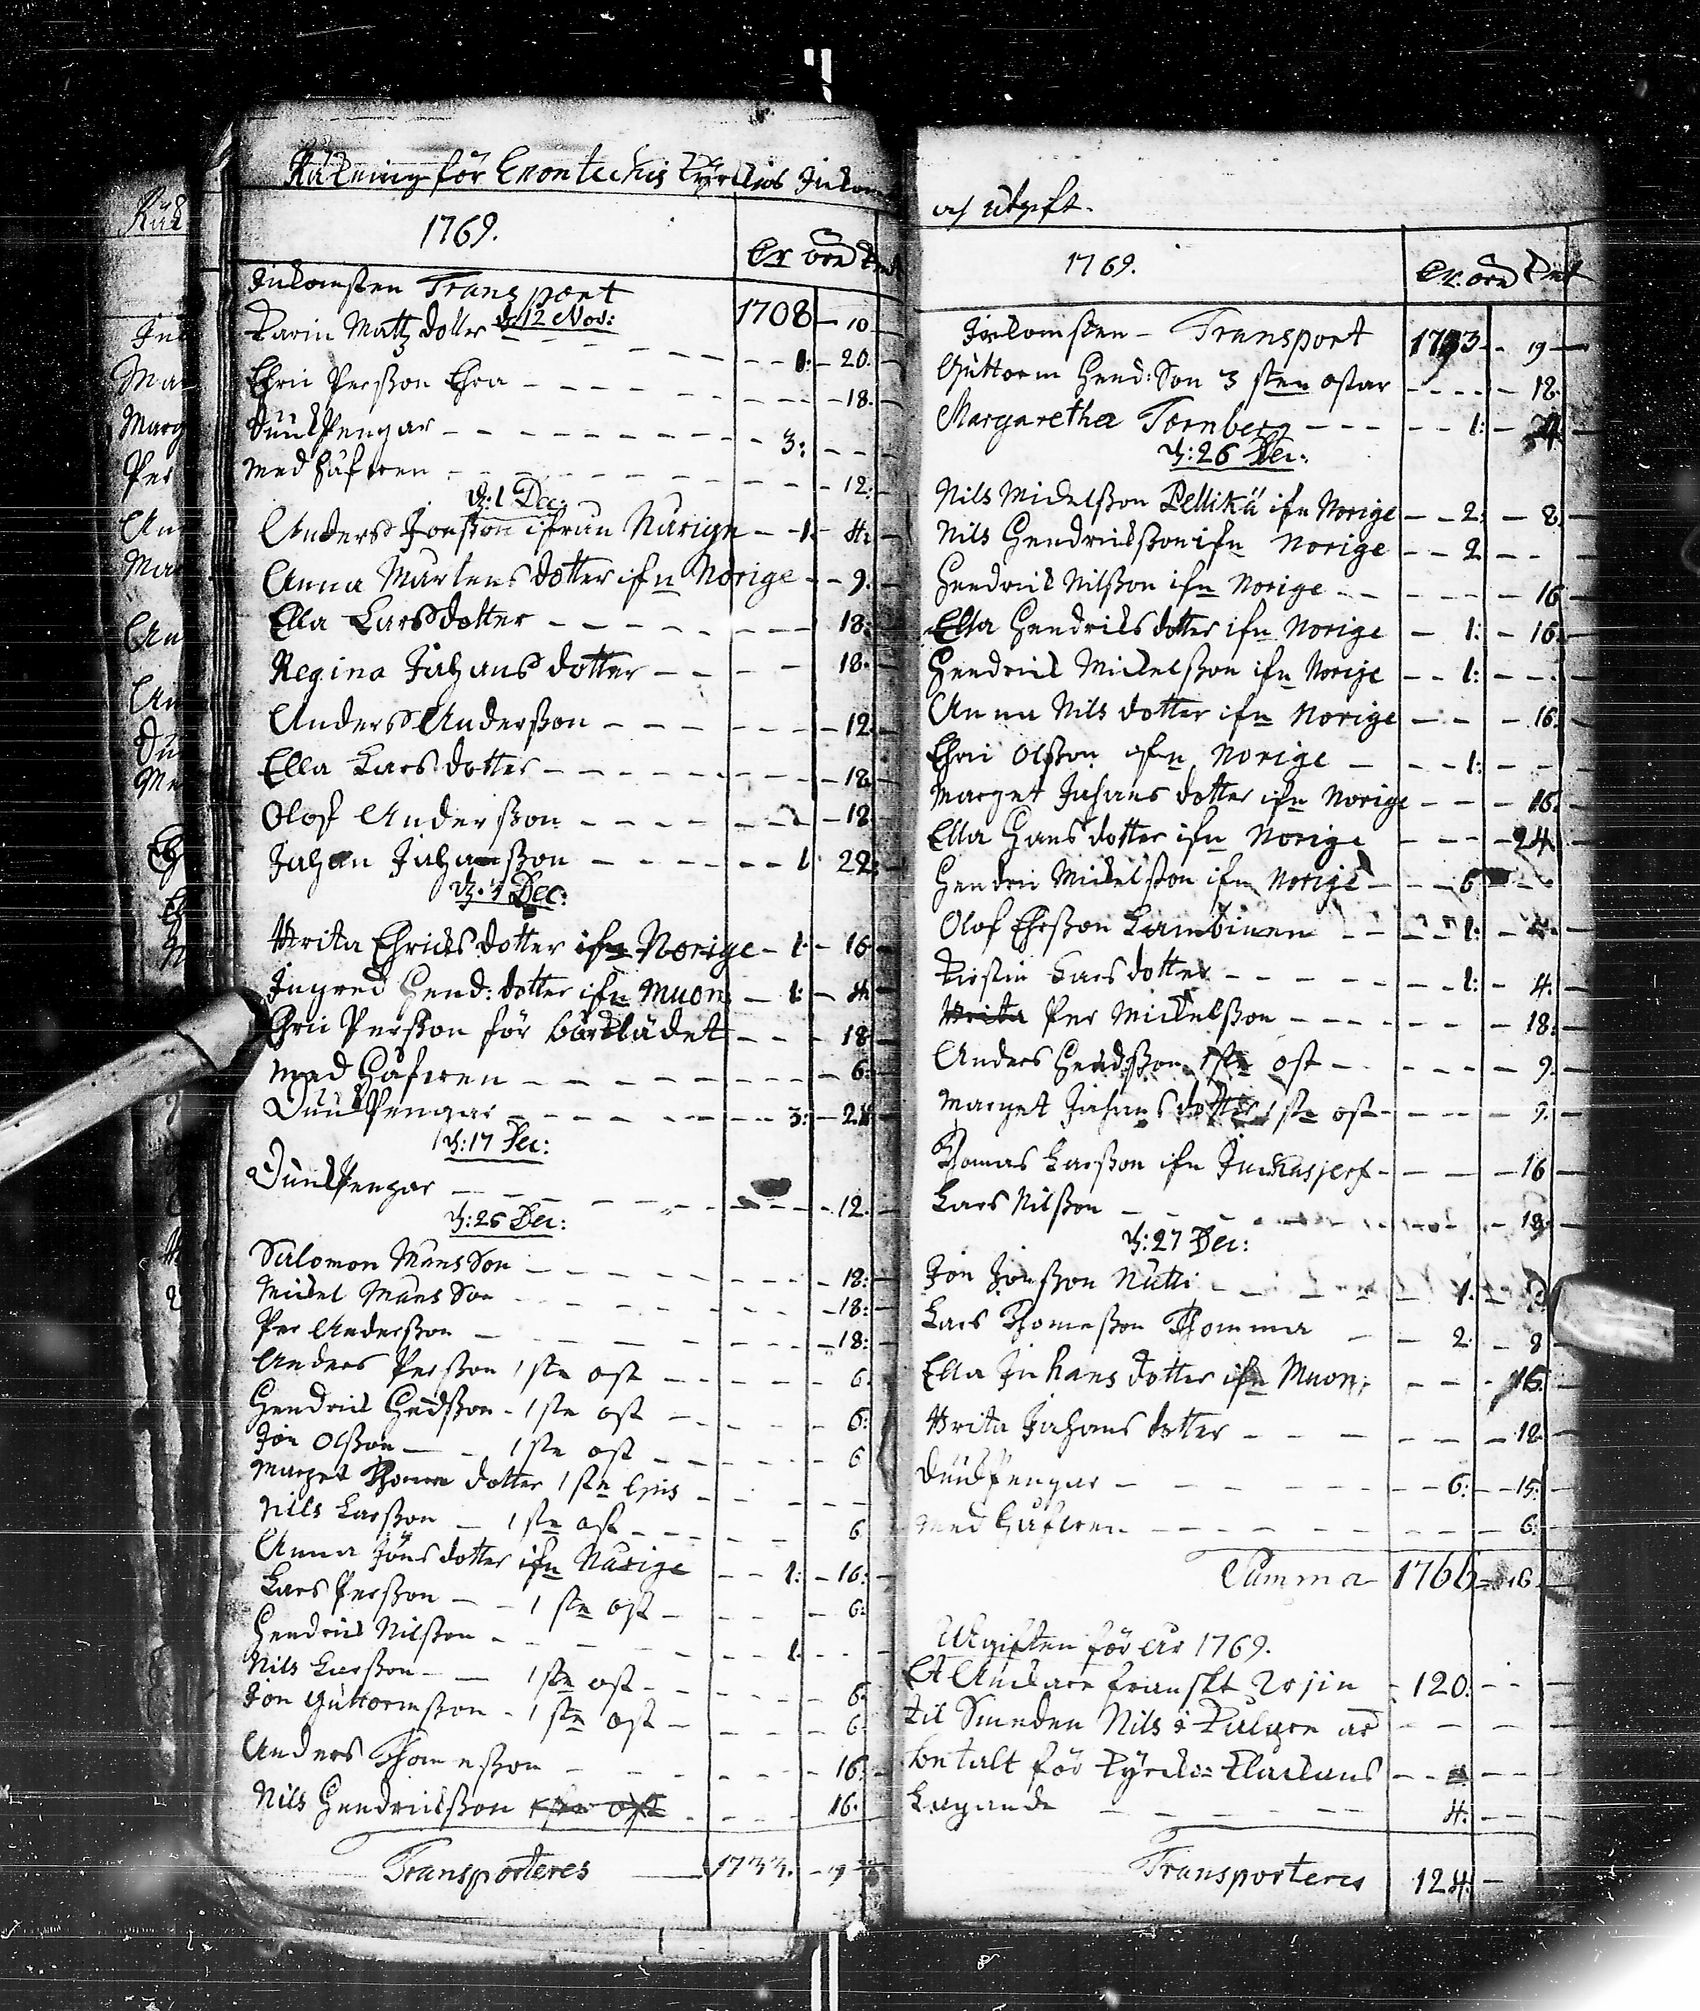 Räkning för Enontekis Kyrckios Inkomst
1769.
Er öre Pent
Inkomsten Transport 1708 - 10
d: 12 Nov:
Karin Matz dotter - 1: - 20.
Ehric Persson - 18.
Pengar - 3: - -
med håfwen - 12:
d: 1 Dec:
Anders Jonsson ifrån Norige - 1 - 4:
Anna Martens dotter ifn Norige - 9.
Ella Larsdotter - 18:
Regina Johans dotter - 18.
Anders Andersson - 12.
Ella Lars dotter - 18.
Olof Andersson - 18.
Johan Johansson - 1 22:
Dec:
Brita Ehricks dotter ifn Norige - 1: - 16.
Ingred Hend: dotter ifn Muon: - 1: - 4.
Ehric Persson för bårklädet - 18
med Håfwen - 6:
Pengar - 3: - 21
d: 17 Dec:
Pengar - 12:
d: 26 Dec:
Salomon Mans Son - 18:
Mickel Mans Son - 18:
Per Andersson - 18:
Anders Persson 1 stn ost - 6.
Hendrick Hendsson - 1 stn ost - 6:
Jon Olsson - 1 stn ost - 6
Marget dotter 1 stn
Nills Larsson - 1 stn ost - 6
Anna Jöns dotter ifn Norige - 1: - 16:
Lars Persson - 1 stn ost - 6:
Hendrick Nilsson - 1.
Nils Larsson - 1 stn ost - 6.
Jon Guttormsson - 1 stn ost - 6.
Anders Thomesson - 16:
Nils Hendricksson - 16.
Transporteres 1733. - 19
och utgift.
1769.
Er. öre Pent
Inkomsten - Transport 1733 - 19
Guttorm Hend: Son 3 sten ostar - 18.
Margaretha Tornberg - 1: -
d: 26 Dec:
Nils Mickelsson Pellikä ifn Norige - 2: - 8.
Nils Hendricksson ifn Norige - 2
Hendrick Nilsson ifn Norige - 16
Ella Hendricks dotter ifn Norige - 1: - 16.
Hendrick Mickelsson ifn Norije - 1: - -
Anna Nils dotter ifn Norige - 16.
Ehric Olsson ifn Norige - 1: - -
Marget Johans dotter ifn Norige - 16.
Ella Hans dotter ifn Norige - 24.
Hendric Mickelsson ifn Norige - 6
Olof Ehrsson - 1: -
Kirstin Lars dotter - 1: - 4.
Brita Per Mickelsson - 18:
Anders Hendsson 1 stn ost - 9.
Marget Johans dotter 1 stn ost - 9.
Thomas Larsson ifn Juckasjerf - 16
Lars Nilsson - 18.
d: 27 Dec:
Jon Jonsson Nutti - 1. -
Lars Thomesson Thomma - 2. - 8
Ella Johans dotter ifn Muon: - 16.
Brita Johans dotter - 12
Pengar - 6: - 15:
med håfwen - 6:
Summa 1766 - 16
Utgiften för År 1769.
Et Anckare franskt - 120: - -
Til Smeden Nils i
betalt för Kyrckio Klockans
Lagande - 4. - -
Transporteres 124. -